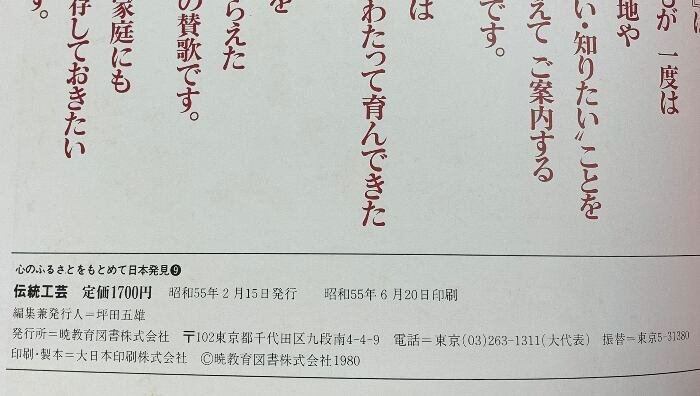 もが 一度は
地や
い・知りたい〟ことを
えて ご案内する
です。
は
わたって育んできた
を
らえた
の賛歌です。
家庭にも
存しておきたい
す。
心のふるさとをもとめて日本発見❾
伝統工芸 定価1700円 昭和55年2月15日発行 昭和55年6月20日印刷
編集兼発行人＝坪田五雄
発行所＝暁教育図書株式会社 〒102東京都千代田区九段南4-4-9 電話＝東京(03)263-1311(大代表) 振替＝東京5-31380
印刷・製本＝大日本印刷株式会社 ©暁教育図書株式会社1980